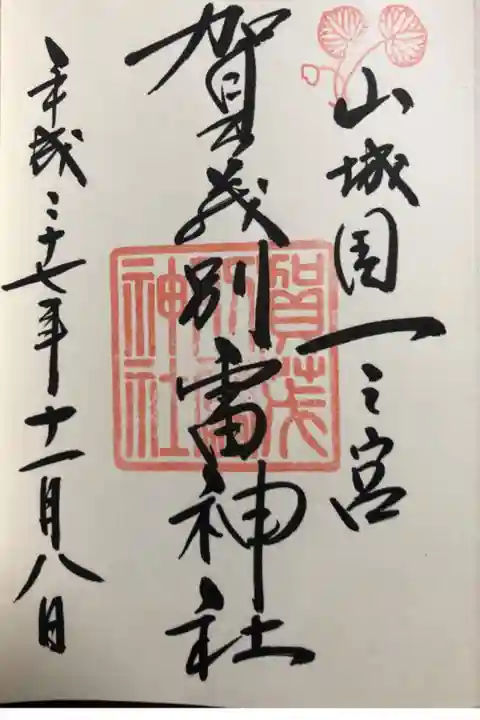 山城国一之宮
賀茂別雷神社
平成二十七年十一月八日
賀茂
別雷
神社